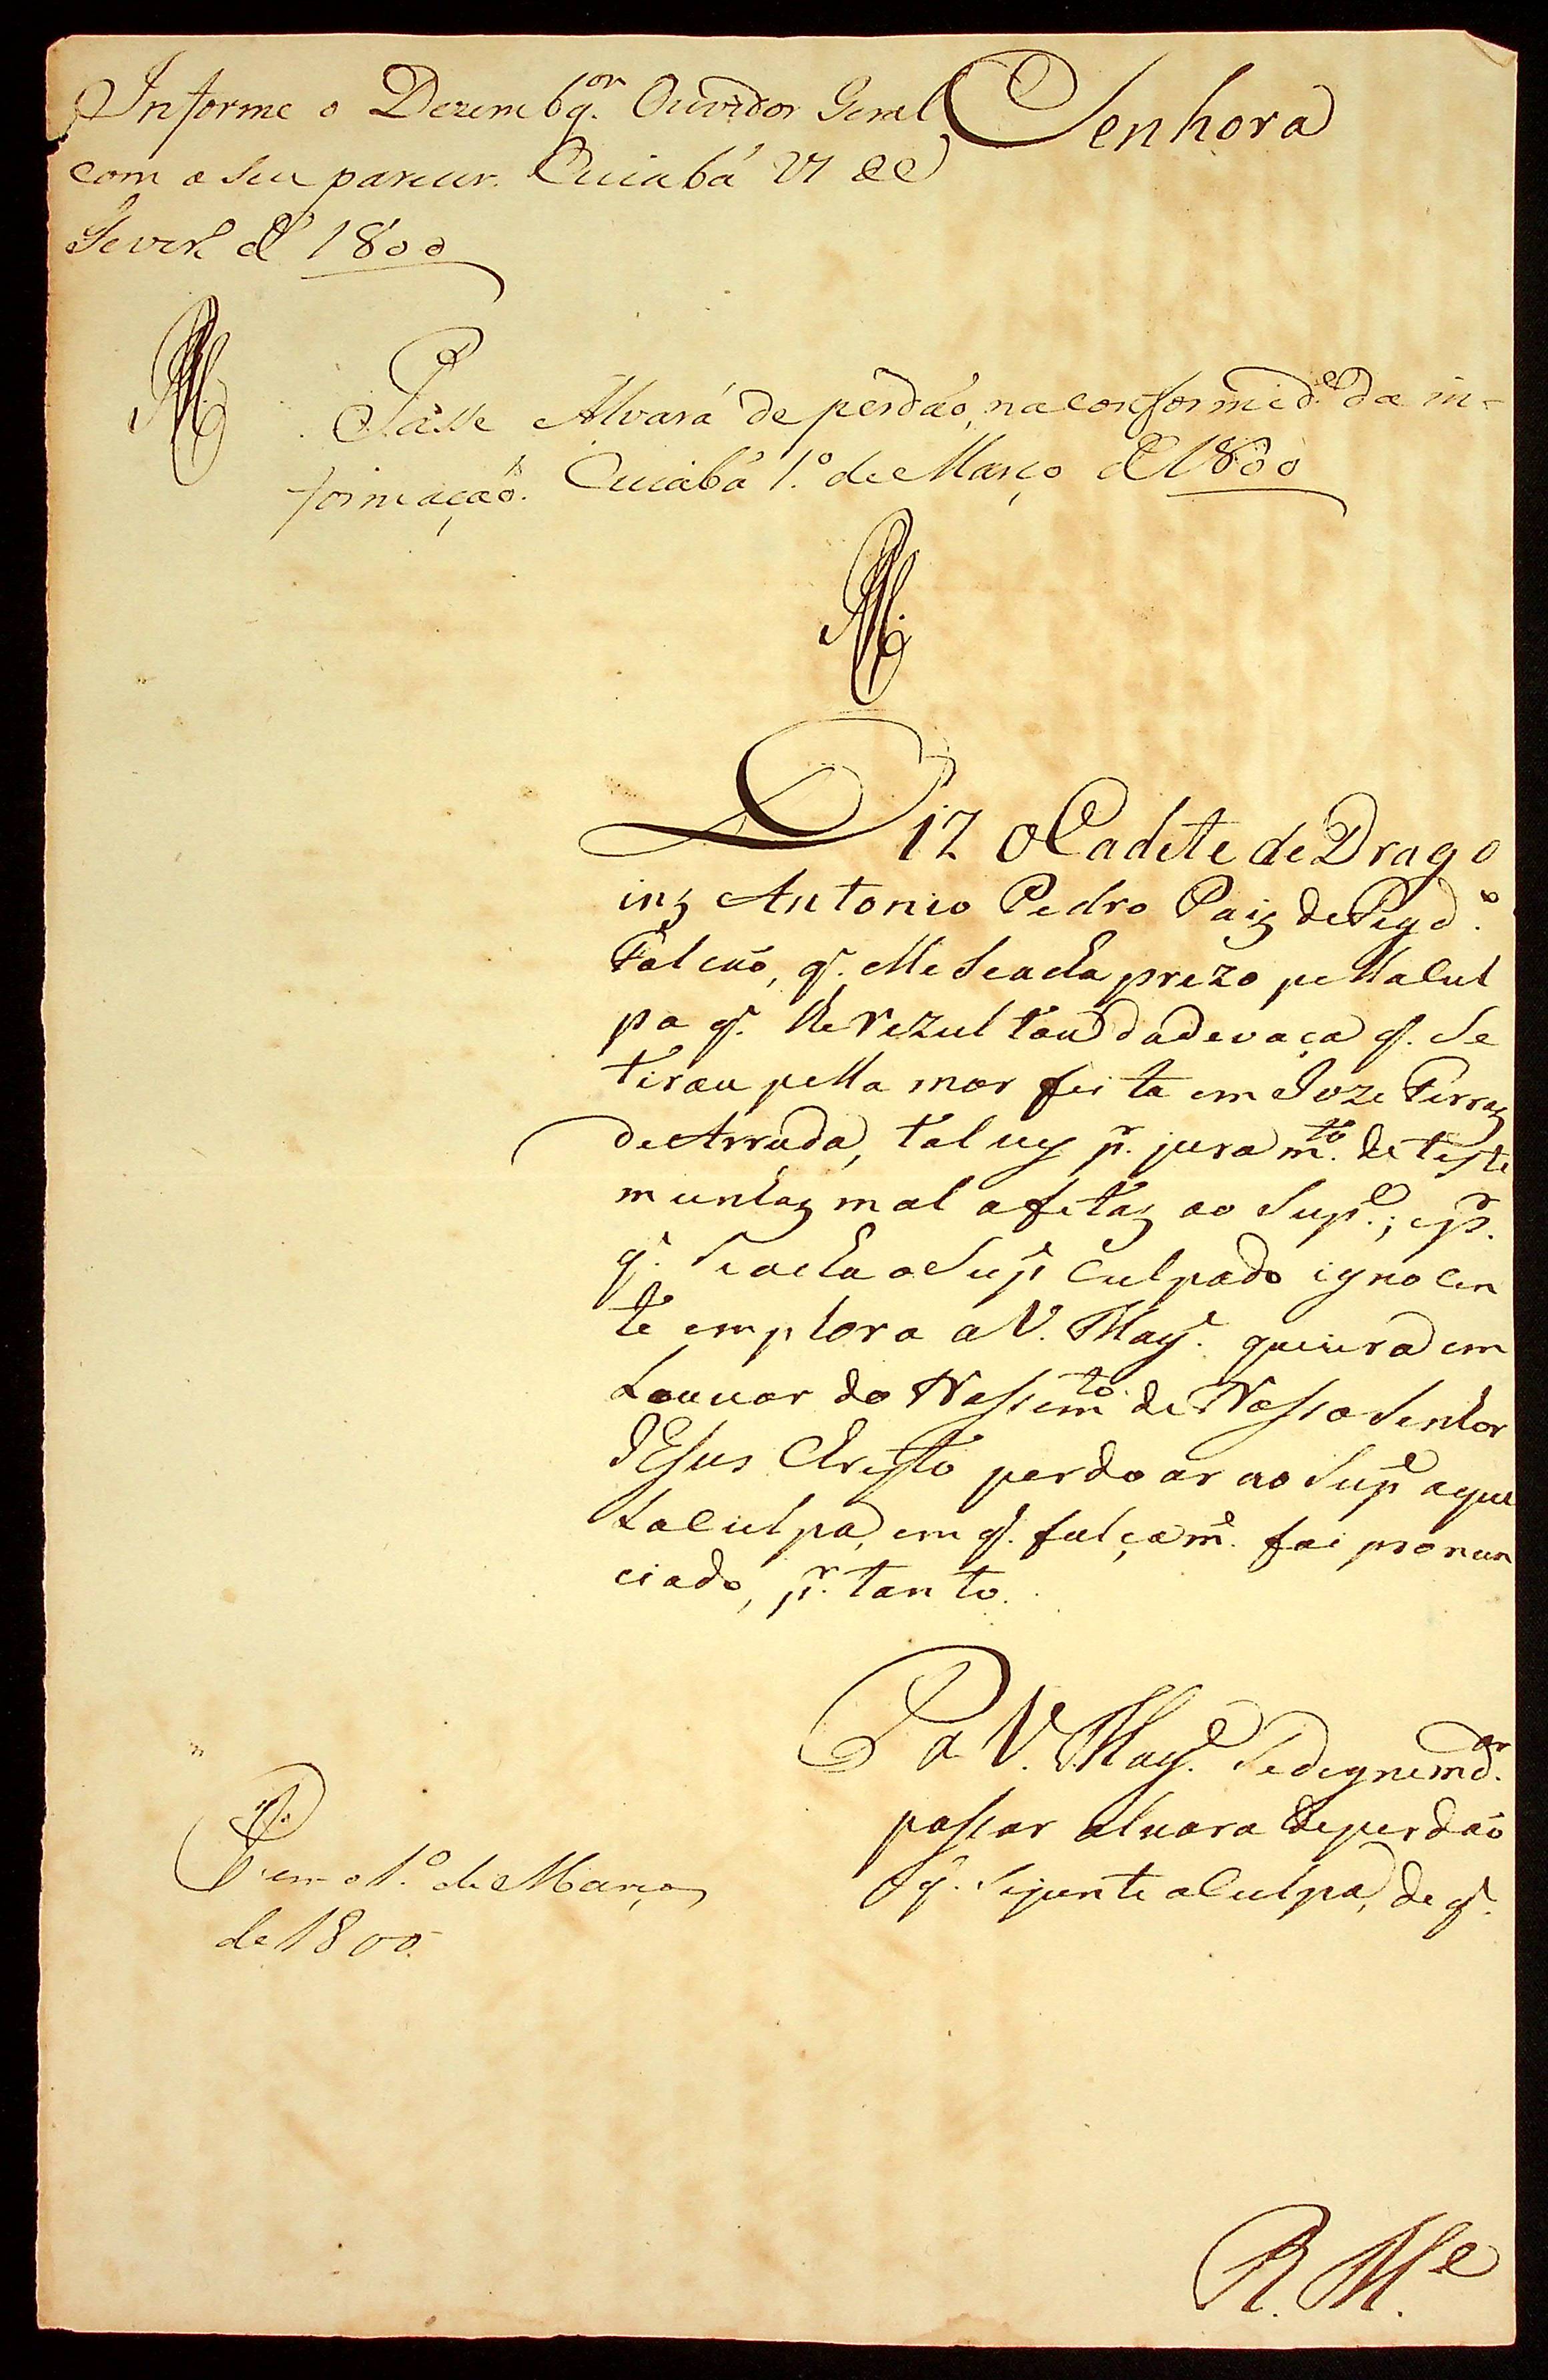 Informe o Dezembg.or Ouvidor Geral
com o seu parecer. Cuiabá 27 de
Fever.o de 1800
Senhora
Passe Alvará de perdaõ, na conformid.e da in-
formaçaõ. Cuiabá 1.º de Março de 1800
Diz o Cadete de Drago
ins Antonio Pedro Pais de Figd.o
Falcaõ, q. elle Seacha prezo pella Cul
pa q. lhe rezultou dadevaça q. Se
tirou pella mor feita em Joze Ferras
de Arruda, talves p.r juram.to de teste
munhas mal afetas ao Sup.e; e p.r
q. Seacha o Sup.e Culpado ignocen
te emplora a V. Mag.e queira em
Louuor do Nassim.to de Nosso Senhor
JEsus Christo perdoar ao Sup.e aque
la Culpa, em q. falçam.e foi pronun
ciado, p.r tanto.
P a V. Mag.e Sedigne md.ar
passar aluara deperdaõ
q. Sejunte a Culpa, de q.
P. em o 1.º de Março
de 1800.
R. M.e